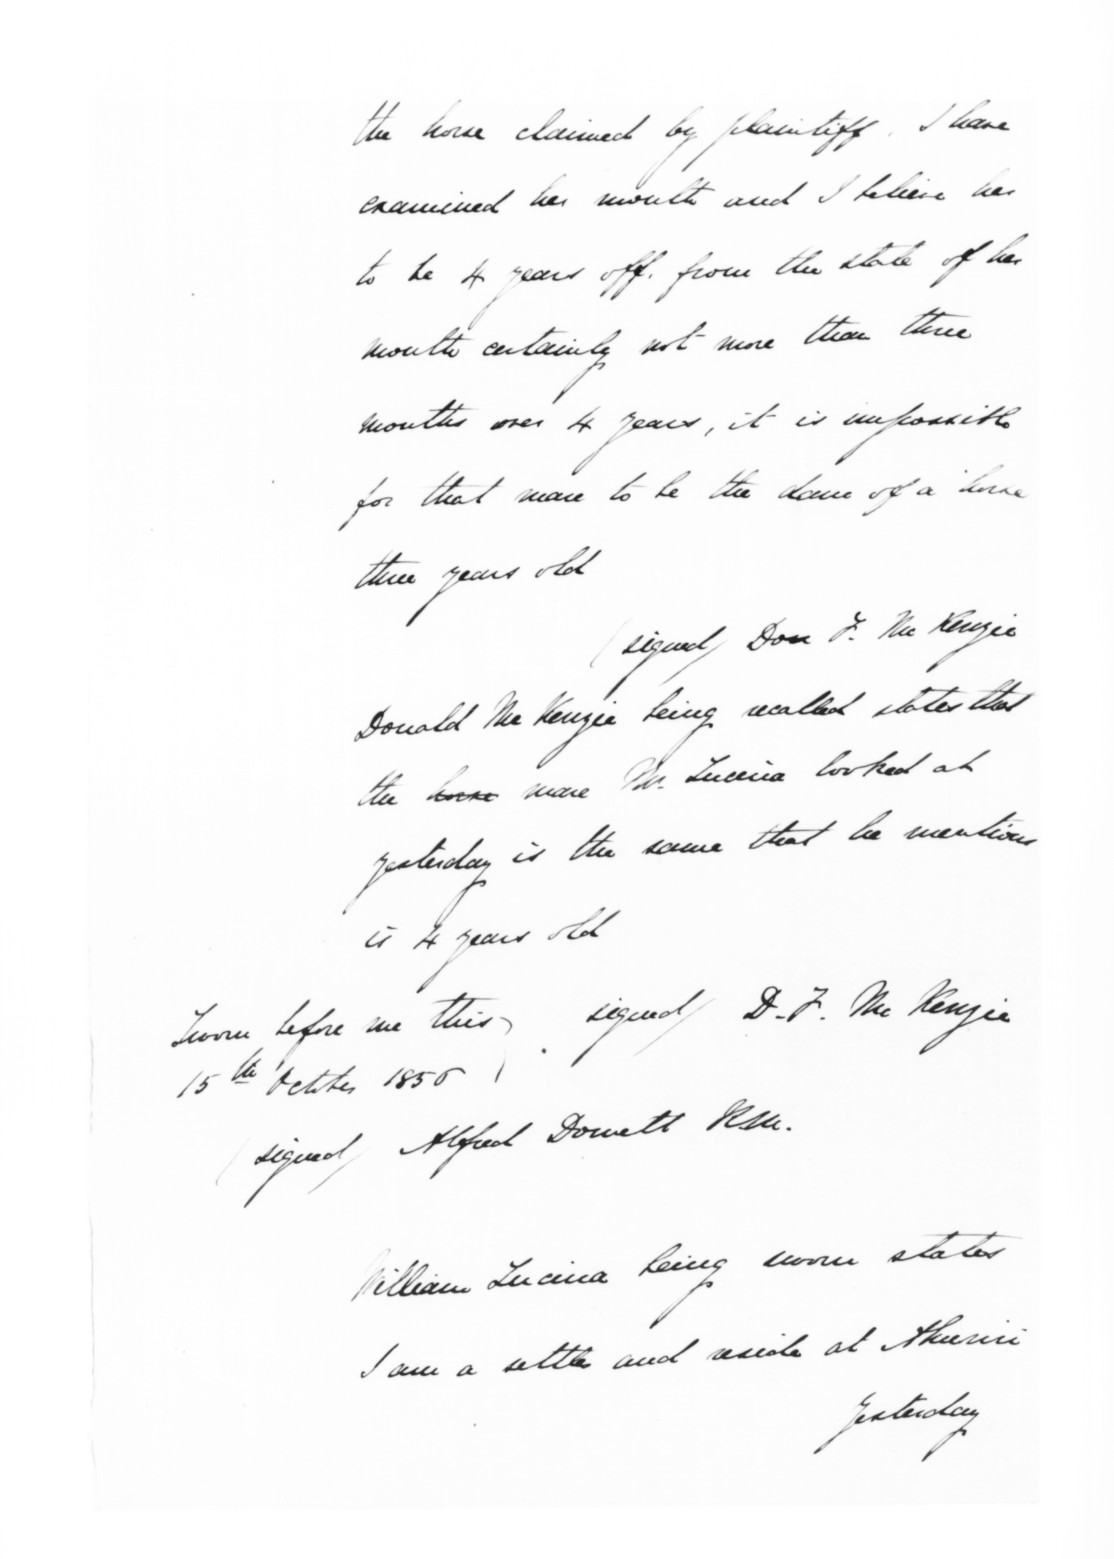 the horse claimed by plaintiff. I have
examined her mouth and I believe her
to be 4 years off. from the state of her
mouth certainly not more than three
months over 4 years, it is impossible
for that mare to be the dam of a horse
three years old
(signed) Don F. McKenzie
Donald McKenzie being recalled states that
the horse mare Mr. Lucina looked at
yesterday is the same that he mentions
is 4 years old
Sworn before me this) signed) D. F. McKenzie
15th October 1856 ).
(signed) Alfred Domett R.M.
William Lucina being sworn states
I am a settle and reside at Ahuriri
Yesterday